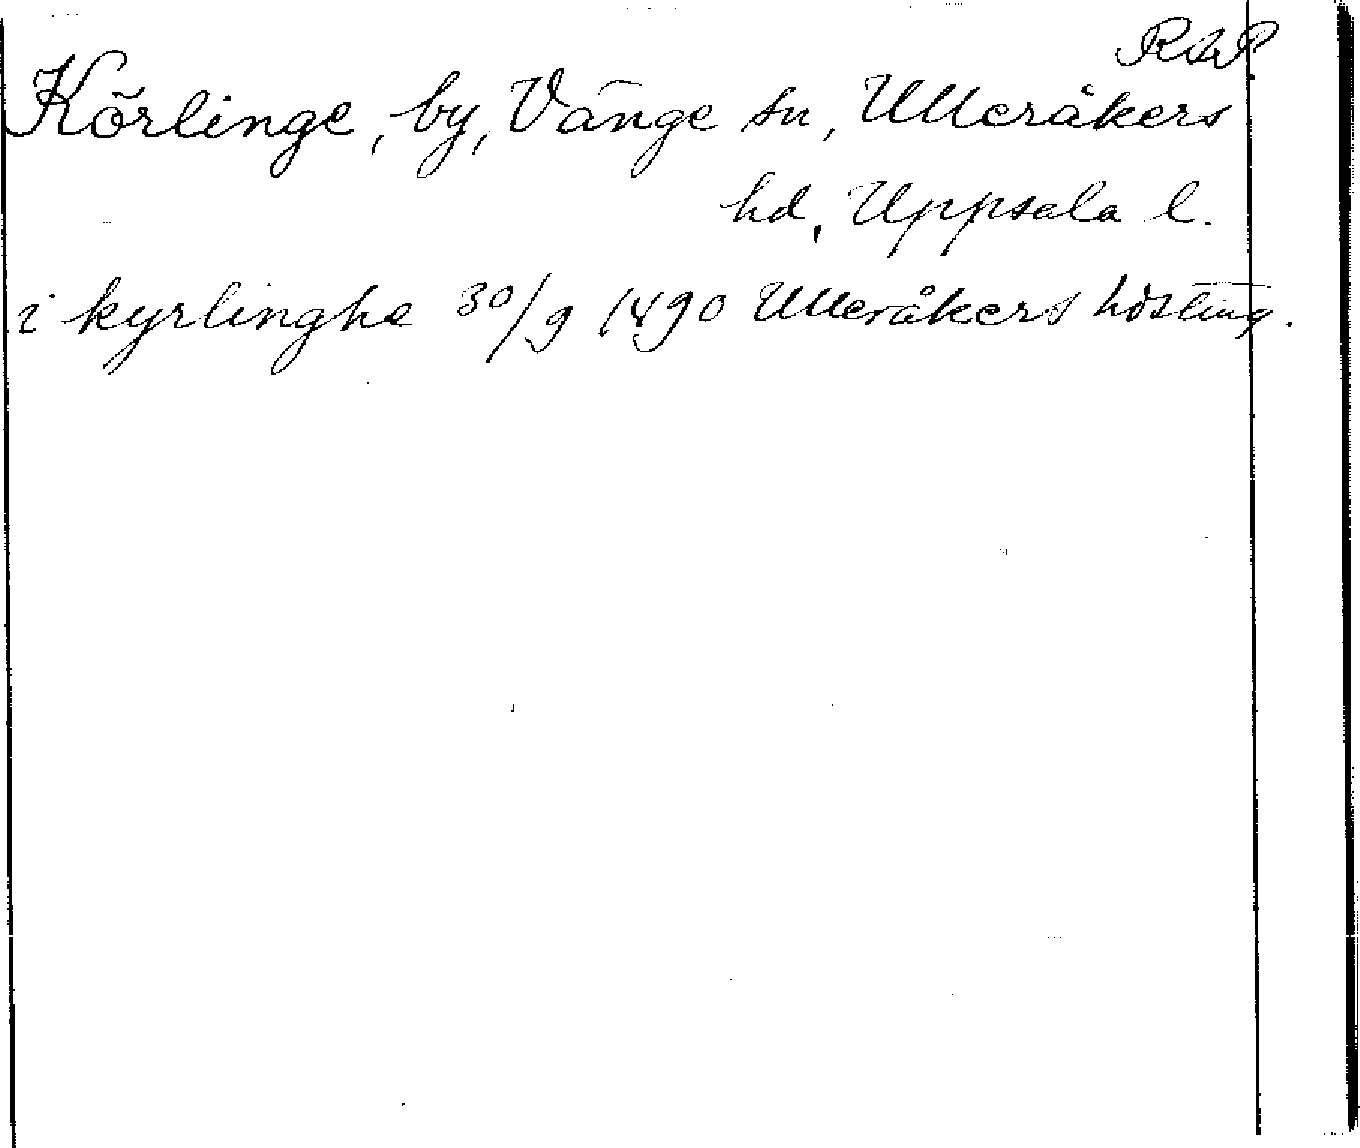 RAP
Körlinge, by, Vänge sn, Ulleråkers
hd, Uppsala l.
i kyrlinghe 30/9 1490 Ulleråkers hdsting.